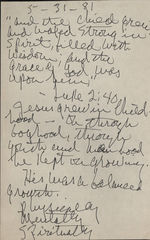 5-31-31
"and the child grew
and waxed strong in
spirit, filled with
wisdom, and the
grace of God was
upon him,
- Luke 2:40
Jesus grew in child
hood - through
boyhood, through
youth and manhood
he kept on growing.
His was a balanced
growth.
Physically
Mentally
Spiritually